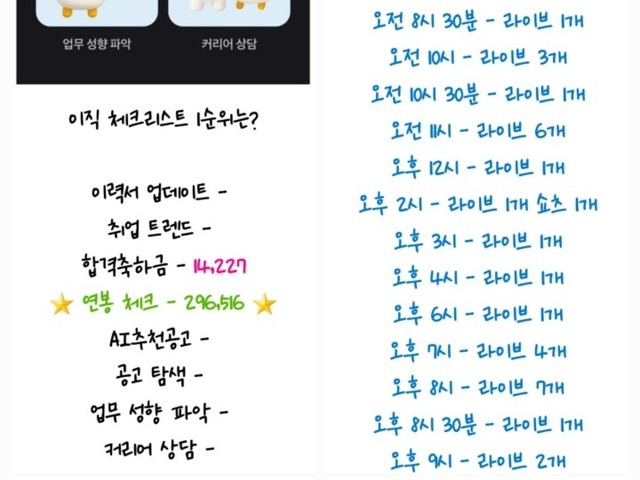 업무 성향 파악
커리어 상담
이직 체크리스트 1순위는?
이력서 업데이트 -
취업 트렌드 -
합격축하금 - 14,227
연봉 체크 - 296,516
AI추천공고 -
공고 탐색 -
업무 성향 파악 -
커리어 상담 -
오전 8시 30분 - 라이브 1개
오전 10시 - 라이브 3개
오전 10시 30분 - 라이브 1개
오전 11시 - 라이브 6개
오후 12시 - 라이브 1개
오후 2시 - 라이브 1개 쇼츠 1개
오후 3시 - 라이브 1개
오후 4시 - 라이브 1개
오후 6시 - 라이브 1개
오후 7시 - 라이브 4개
오후 8시 - 라이브 7개
오후 8시 30분 - 라이브 1개
오후 9시 - 라이브 2개